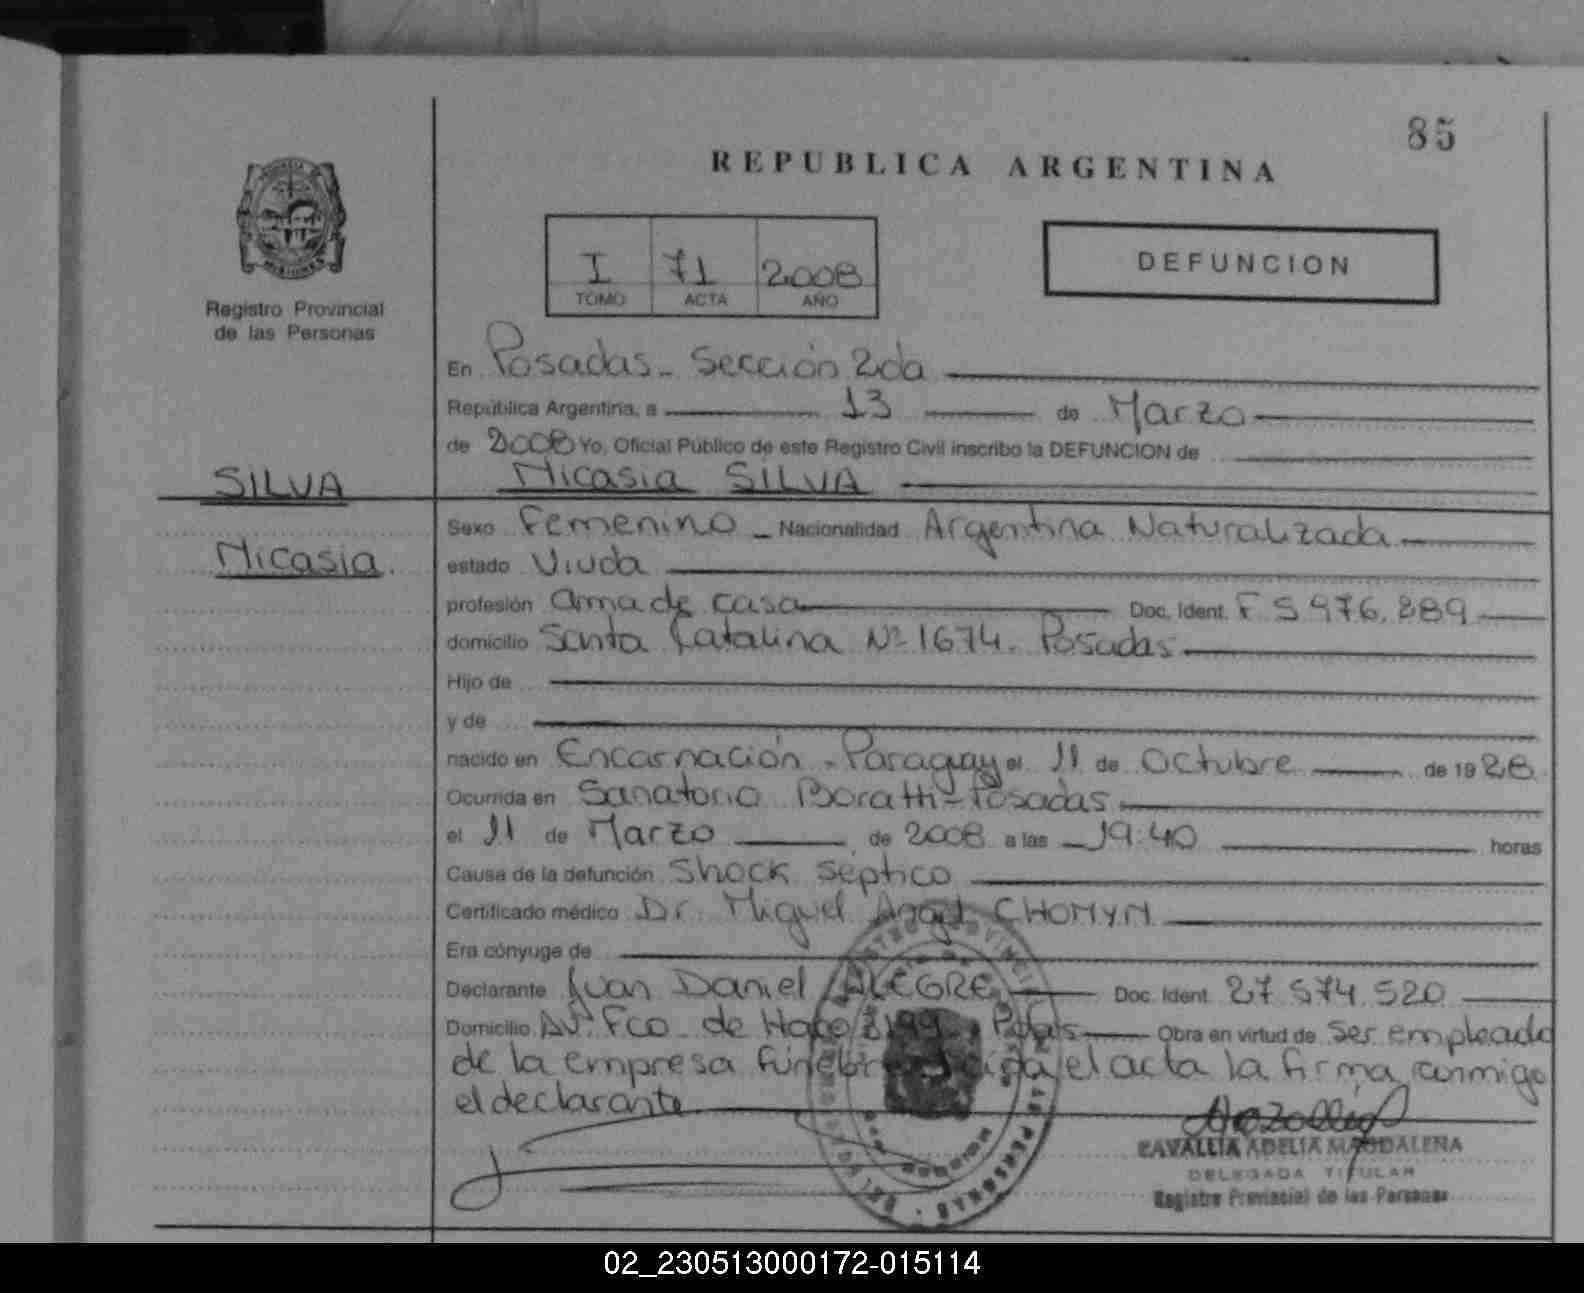 85
REPUBLICA ARGENTINA
I 71 2008
TOMO ACTA AÑO
DEFUNCION
Registro Provincial
de las Personas
En Posadas - Sección 2da
República Argentina, a 13 de Marzo
de 2008 Yo, Oficial Público de este Registro Civil inscribo la DEFUNCION de
SILVA
Nicasia SILVA
Sexo Femenino - Nacionalidad Argentina Naturalizada
Nicasia.
estado Viuda
profesión ama de casa Doc. Ident. F 5.976.289
domicilio Santa Catalina Nº 1674. Posadas
Hijo de
y de
nacido en Encarnación - Paraguay el 11 de Octubre de 1928
Ocurrida en Sanatorio Boratti - Posadas
el 11 de Marzo de 2008 a las 19:40 horas
Causa de la defunción Shock Séptico
Certificado médico Dr. Miguel Angel CHOMYN
Era cónyuge de
Declarante Juan Daniel ALEGRE Doc. Ident. 27.574.520
Domicilio Av. Fco de Haro Obra en virtud de ser empleado
de la empresa el acta la firma conmigo
el declarante
CAVALLIA ADELIA MAGDALENA
DELEGADA TITULAR
Registro Provincial de las Personas
02_230513000172-015114